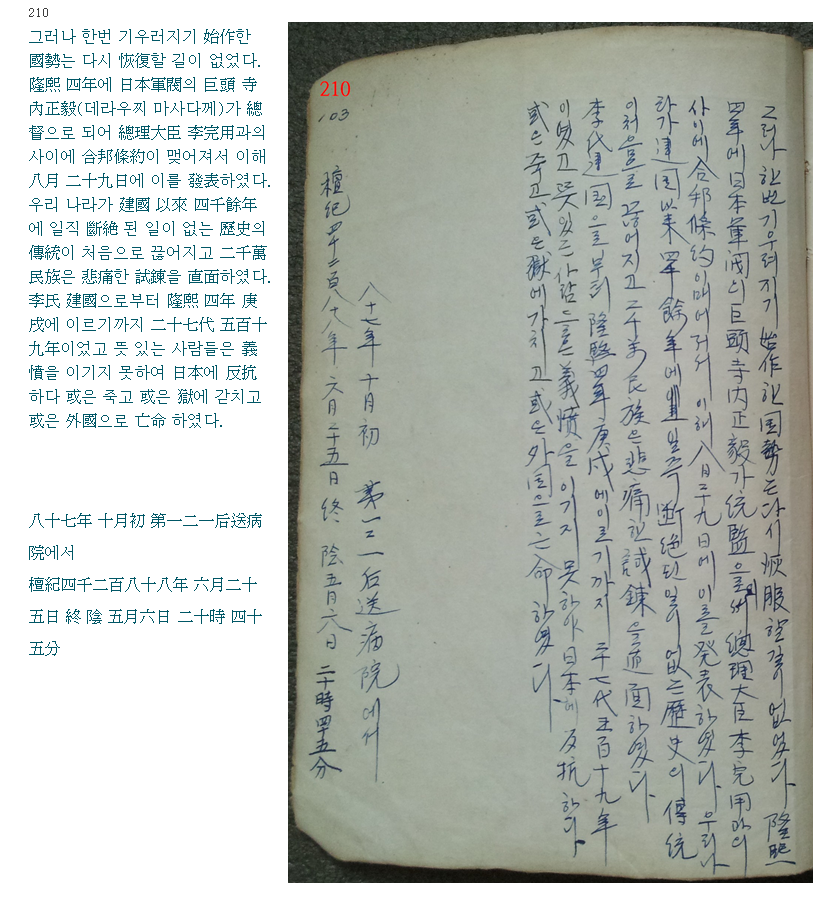 210
그러나 한번 기우러지기 始作한
國勢는 다시 恢復할 길이 없었다.
隆熙 四年에 日本軍閥의 巨頭 寺
內正毅(데라우찌 마사다께)가 總
督으로 되어 總理大臣 李完用과의
사이에 合邦條約이 맺어져서 이해
八月 二十九日에 이를 發表하였다.
우리 나라가 建國 以來 四千餘年
에 일직 斷絶 된 일이 없는 歷史의
傳統이 처음으로 끊어지고 二千萬
民族은 悲痛한 試鍊을 直面하였다.
李氏 建國으로부터 隆熙 四年 庚
戌에 이르기까지 二十七代 五百十
九年이었고 뜻 있는 사람들은 義
憤을 이기지 못하여 日本에 反抗
하다 或은 죽고 或은 獄에 갇치고
或은 外國으로 亡命 하였다.
八十七年 十月初 第一二一后送病
院에서
檀紀四千二百八十八年 六月二十
五日 終 陰 五月六日 二十時 四十
五分
210
103
그러나 한번 기우러지기 始作한 国勢는 다시 恢服할 길이 없었다. 隆熙
四年에 日本軍閥의 巨頭 寺内正毅가 統監으로 總理大臣 李完用과의
사이에 合邦條約이 매어저서 이해 八月二十九日에 이를 発表하였다. 우리나
라가 建国以来 四千餘年에 일즉 断絶된 일이 없는 歷史의 傳統
이 처음으로 끊어지고 二千萬 民族은 悲痛한 試鍊을 直面하였다.
李氏建国으로부터 隆熙四年 庚戌에 이르기까지 二十七代 五百十九年
이였고 뜻있는 사람들은 義憤을 이기지 못하야 日本에 反抗하다
或은 죽고 或은 獄에 가치고 或은 外国으로 亡命하였다.
八十七年 十月初 第一二一后送病院에서
檀紀四千二百八十八年 六月二十五日 終 陰五月六日 二十時四十五分